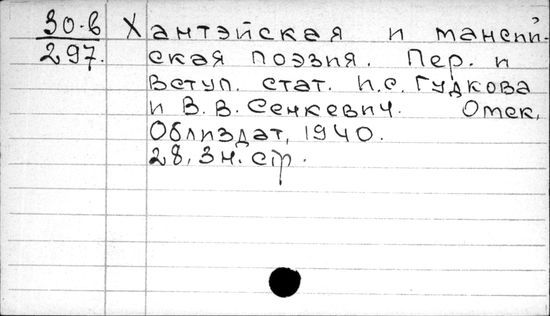 30-в
297.
Хантэйская и мансий-
ская поэзия. Пер. и
вступ. стат. И.С. Гудкова
и В. В. Сенкевич. Омск,
Облиздат, 1940.
28, 3 н. стр.